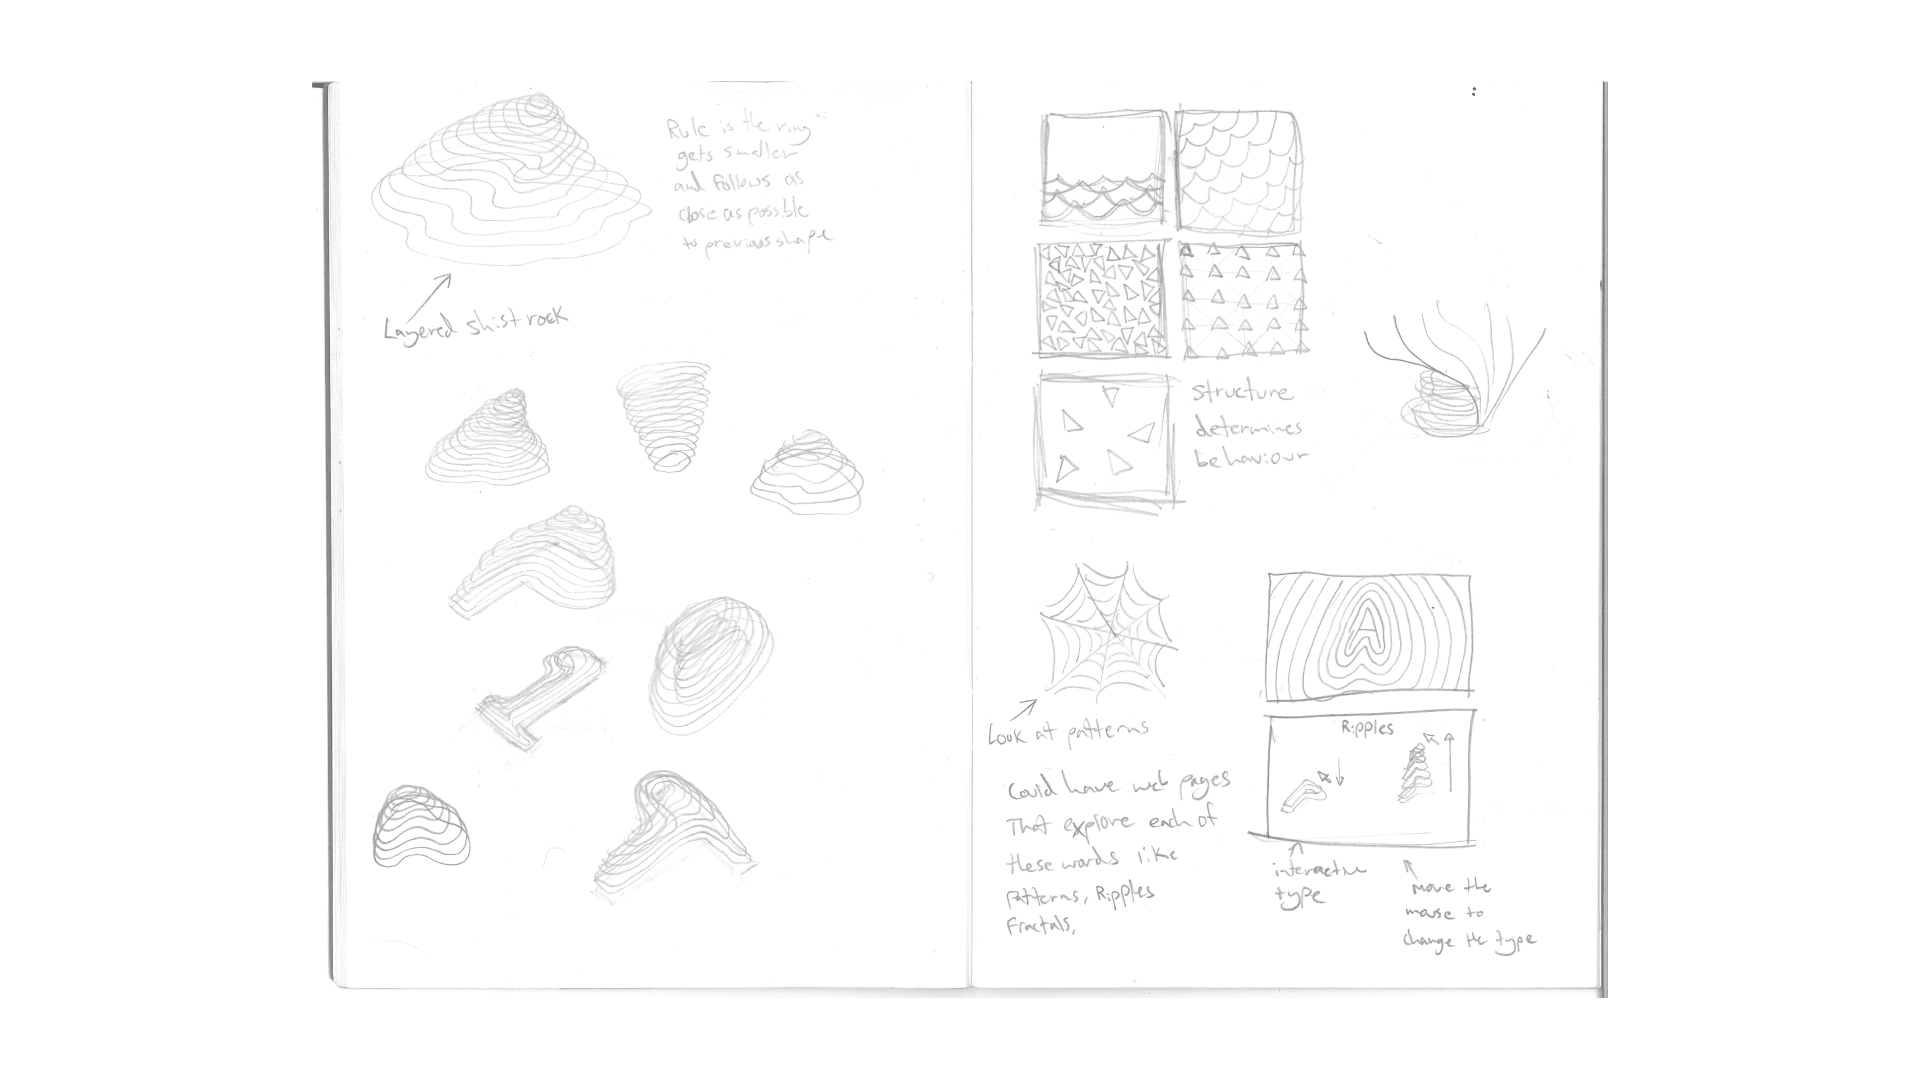 Rule is the ring
gets smaller
and follows as
close as possible
to previous shape
Layered shist rock
structure
determines
behaviour
Look at patterns
Could have web pages
That explore each of
these words like
Patterns, Ripples
Fractals,
A
Ripples
interactive
type
move the
mouse to
change the type